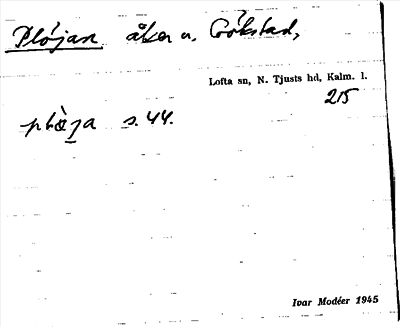 Plöjan åker u. Gökstad,
Lofta sn, N. Tjusts hd, Kalm. l.
215
s. 44.
Ivar Modéer 1945